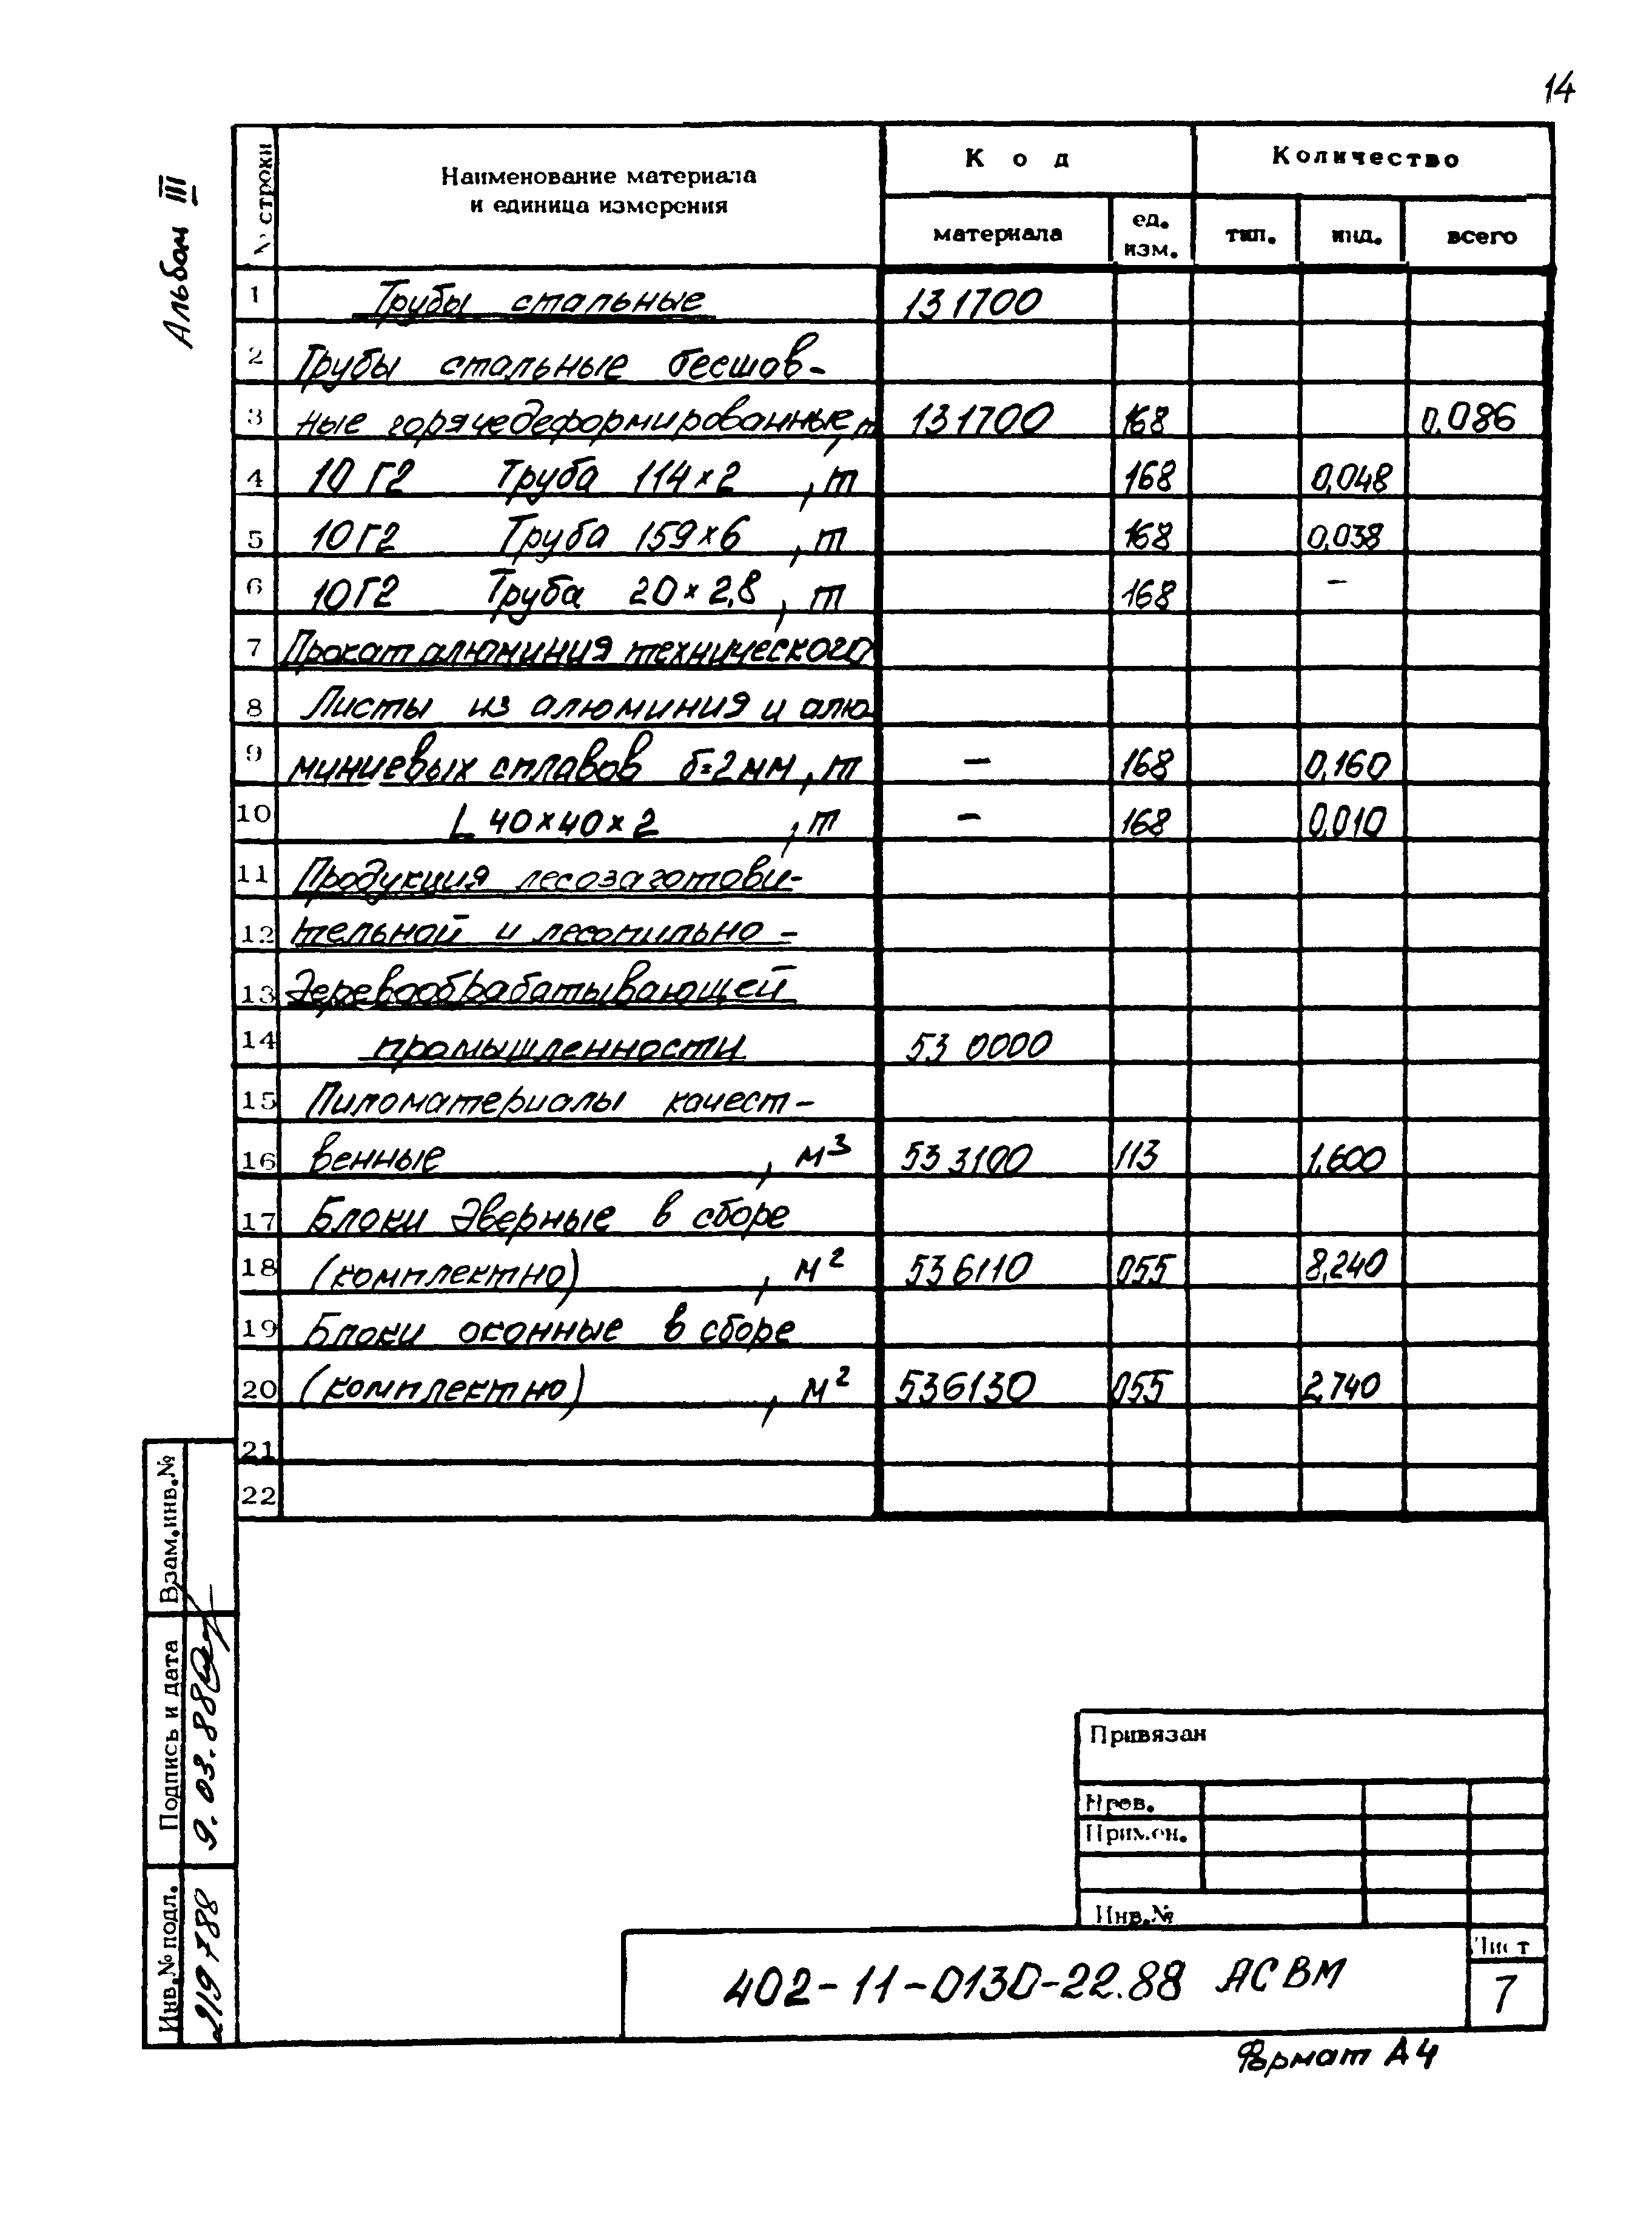 14
Альбом III
№ строки
Наименование материала
и единица измерения
Код
Количество
материала
ед.
изм.
тип.
инд.
всего
1 Трубы стальные 131700
2 Трубы стальные бесшов-
3 ные горячедеформированные, т 131700 168 0,086
4 10Г2 Труба 114×2 , т 168 0,048
5 10Г2 Труба 159×6 , т 168 0,038
6 10Г2 Труба 20×2,8 , т 168 –
7 Прокат алюминия технического
8 Листы из алюминия и алю-
9 миниевых сплавов б=2мм, т – 168 0,160
10 L 40×40×2 , т – 168 0,010
11 Продукция лесозаготови-
12 тельной и лесопильно-
13 деревообрабатывающей
14 промышленности 53 0000
15 Пиломатериалы качест-
16 венные , м³ 53 3100 113 1,600
17 Блоки дверные в сборе
18 (комплектно) , м² 536110 055 8,240
19 Блоки оконные в сборе
20 (комплектно) , м² 536130 055 2,740
21
22
Взам.инв.№
Подпись и дата
9.03.88
Инв.№ подл.
219788
Привязан
Пров.
Инв.№
402-11-0130-22.88 АСВМ
Лист
7
Формат А4